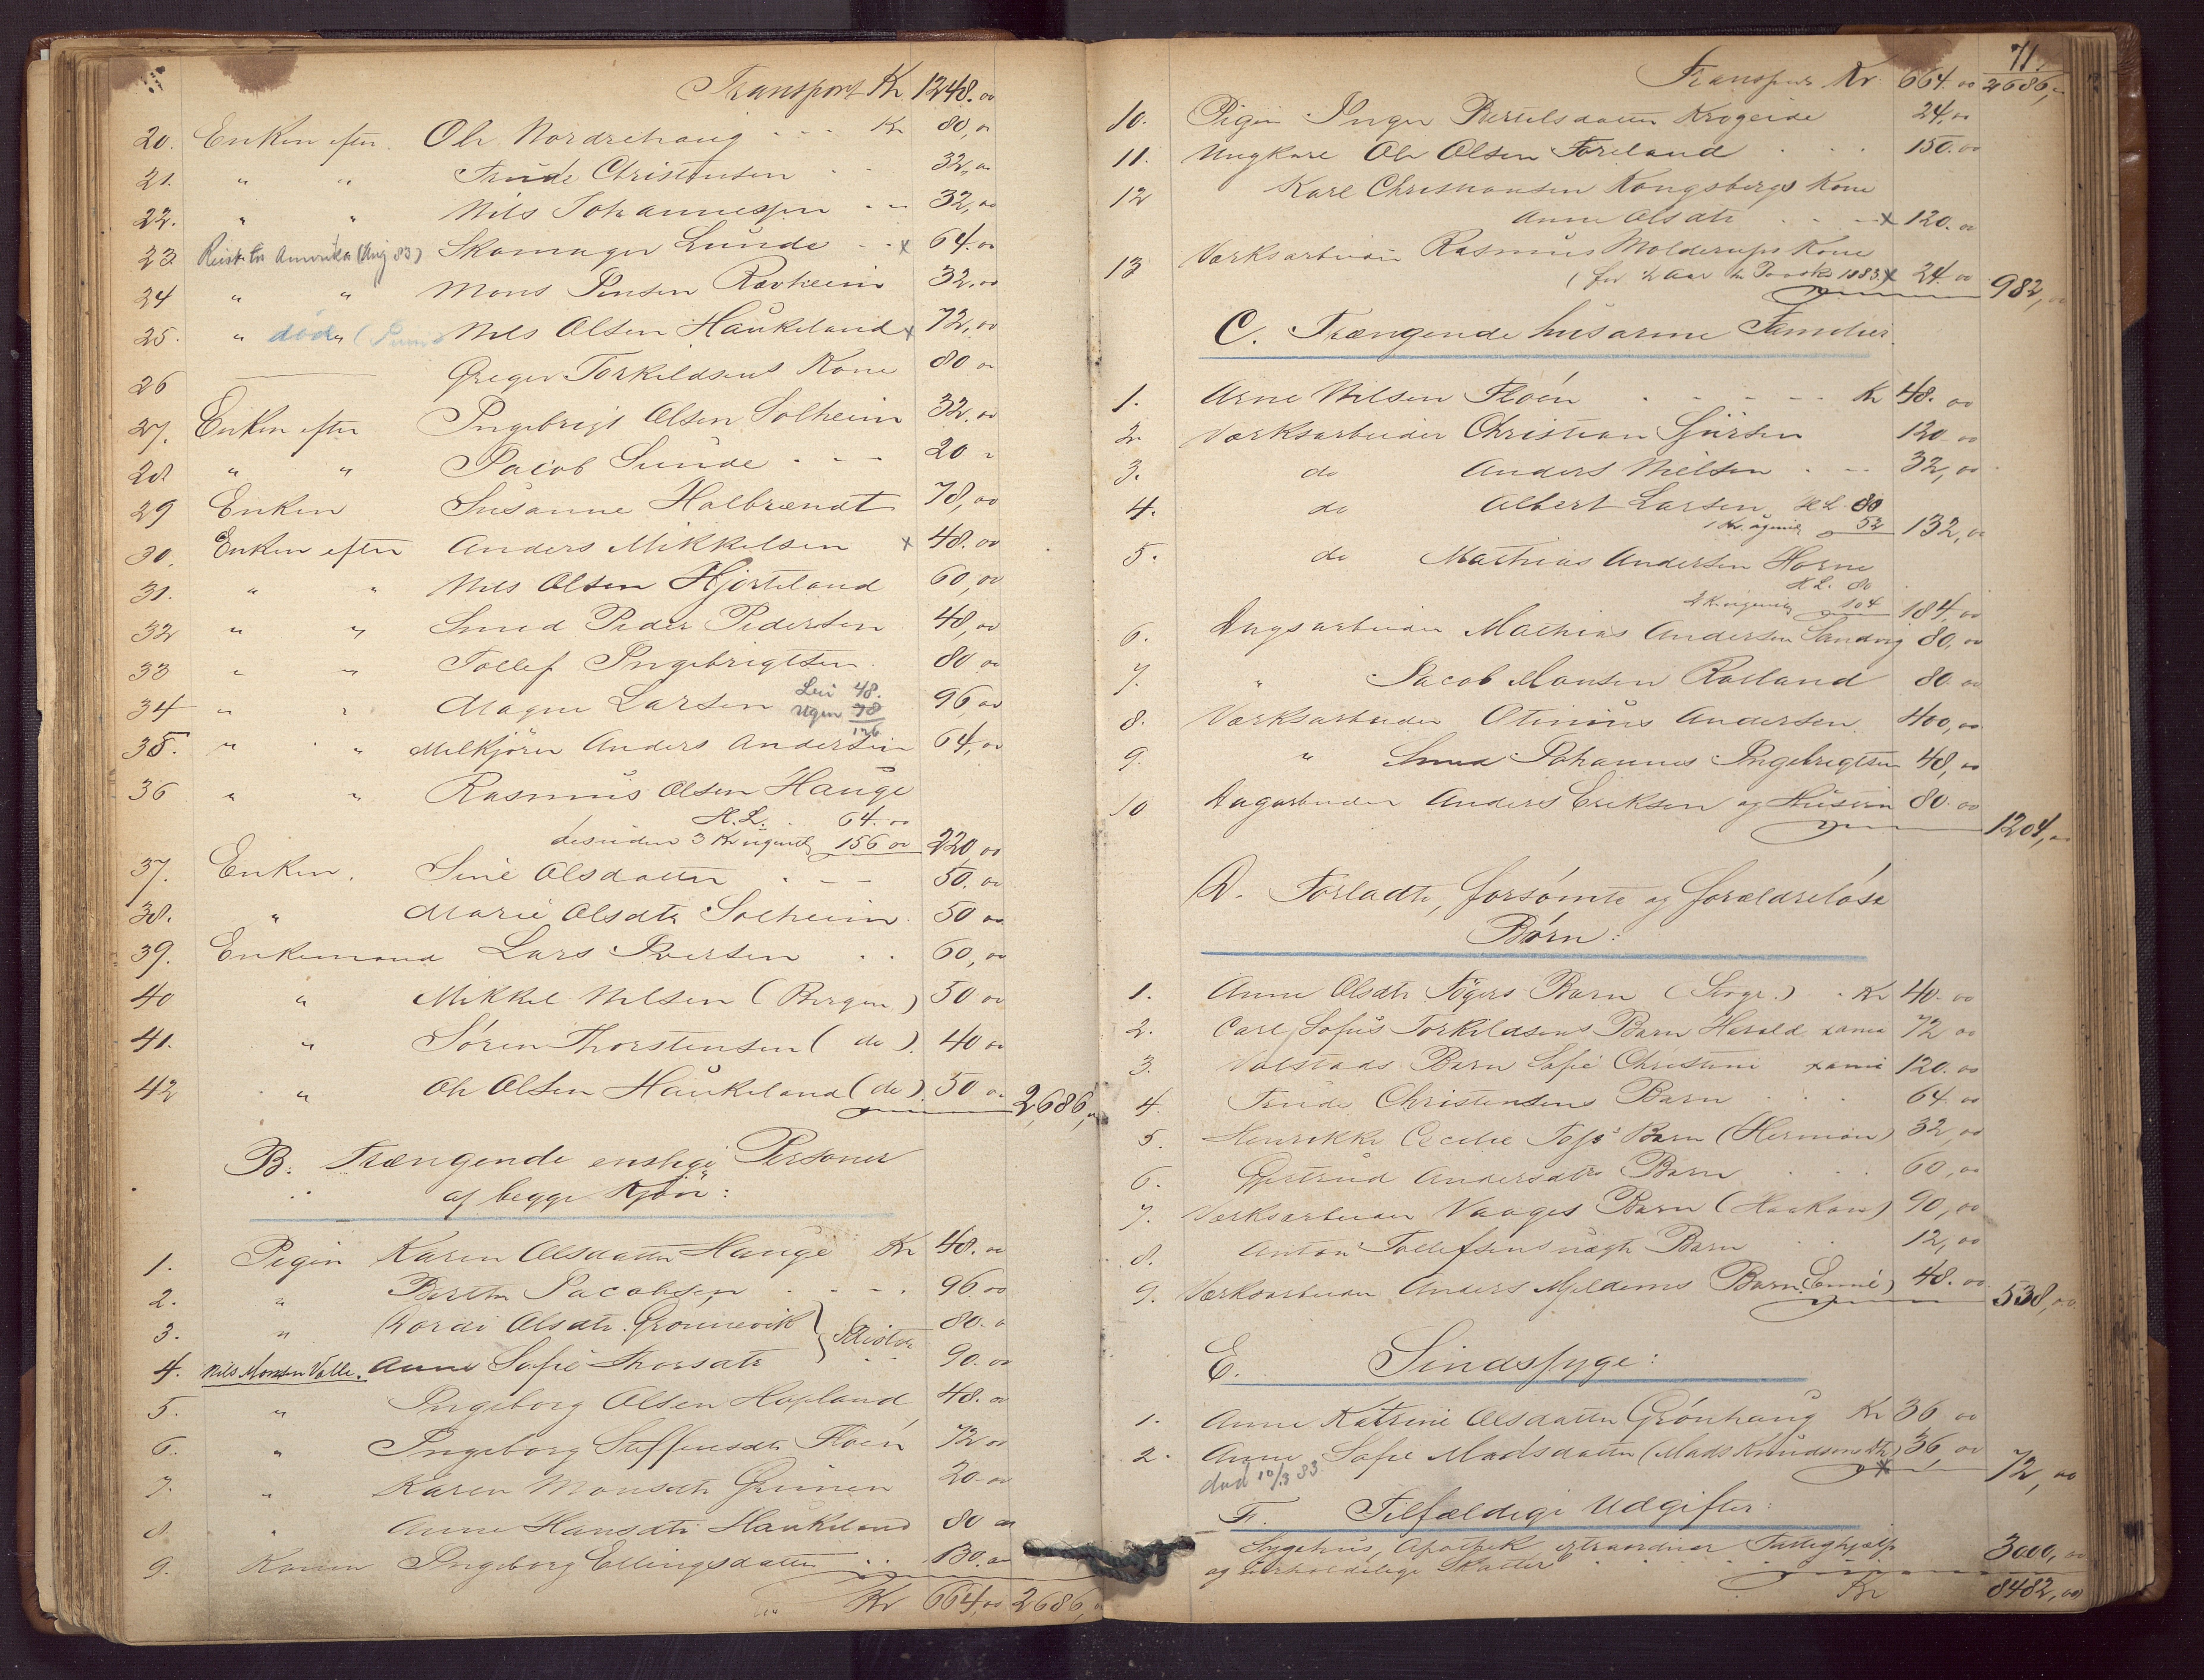 Transport Kr 1248.00
20. Enken efter Ole Nordrehaug - - - Kr 80,00
21. " " Trude Christensen - - 32,00
22. " " Nils Johannessen - - 32,00
23. Reist til Amerika (Aug 83) Skomager Lunde - - x 64.00
24 " " Mons Jensen Ravheim 32.00
25. " døde Nils Olsen Haukeland x 72,00
26 Greger Torkildsens Kone 80 00
27. Enken efter Ingebrigt Olsen Solheim 32.00
28 " " Jacob Sunde - - - 20 "
29 Enken Susanne Halbrændt 78,00
30. Enken efter Anders Mikkelsen x 48.00
31. " " Nils Olsen Hjorteland 60,00
32 " " Smed Peder Pedersen 48,00
33 " " Tollef Ingebrigtsen. 80 00
34 " " Magne Larsen Leie 48. 96,00
Ugen 78
126
35. " " Melkjører Anders Andersen 64,00
36 " " Rasmus Olsen Hauge
H.L. 64.00
desuden 3 Kr ugentl 156 00 220,00
37. Enken. Sine Olsdatter - - - 50.00
38. " Marie Olsdtr Solheim. 50 00
39. Enkemand Lars Iversen . . 60,00
40 " Mikkel Nilsen (Bergen) 50 00
41. " Søren Thorstensen (do). 40 00
42 " Ole Olsen Haukeland (do). 50 00 2,686,00
B. Trængende enslige Personer
af begge Kjøn:
1. Pigen Karen Olsdatter Hauge Kr 48.00
2. " Berthe Jacobsen - - - . 96.00
3. " Gordi Olsdtr. Gronnevik 80.00
4. Nils Monsen Valle. Anne Sofie Thorsdtr 90.00
5. " Ingeborg Olsen Hopland 48.00
6. " Ingeborg Steffensdtr Floen 72 00
7. " Karen Monsdtr Grimen 20.00
8. " Anne Hansdtr Haukeland 80 00
9. Konen Ingeborg Ellingsdatter . . 130.00
Kr 664,00 2686,00
71.
Transport Kr 664.00 2686,"
10. Pigen Inger Bertelsdatter Krogeide 24.00
11. Ungkarl Ole Olsen Foreland . . . 150.00
12 Karl Christiansen Kongsbergs Kone
Anne Olsdtr . . - x 120.00
13 Værksarbeider Rasmus Molderups Kone
(for ½ Aar til Paaske 1883) x 24.00 982,00
C. Trængende husarme Familier.
1. Arne Nilsen Floen . - - - - Kr 48.00
2. Værksarbeider Christian Sjursen 120.00
3. do Anders Nilsen . - - 32,00
4. do Albert Larsen H.L. 80
1 Kr. ugentl 52 132,00
5. do Mathias Andersen Horne
H.L. 80
2 Kr ugentlig 104 184,00
6. Dagsarbeider Mathias Andersen Sandvig 80,00
7. " Jacob Monsen Rolland 80.00
8. Værksarbeider Otinius Andersen. 400,00
9. " Smed Johannes Ingebrigtsen 48,00
10 Dagarbeider Anders Eriksen og Hustru 80.00
1204,00
D. Forladte, forsømte og forældreløse
Børn:
1. Anne Olsdtr Tøgers Barn . Kr 40.00
2. Carl Sofus Torkildsens Barn Harald 72 00
3. Valstads Barn Sofie Christine 120.00
4. Trude Christensens Barn . . . 64.00
5. Henrikke Cecilie Barn (Herman) 32,00
6. Gjertrud Andersdtrs Barn . . . 60,00
7. Værksarbeider Vaages Barn (Haakon) 90,00
8. Anton Tollefsens uægte Barn . 12,00
9. Værksarbeider Anders Mjeldems Barn 48.00 538,00
E. Sindssyge:
1. Anne Katrine Olsdatter Grønhaug Kr 36 00
2. Anne Sofie Madsdatter (Mads Knudsens Dtr) 36,00 72,00
død 10/3 83. x
F. Tilfældige Udgifter:
Sygehus, Apothek extraordinær Fattighjælp
og uerholdelige Skatter . . . . . 3000,00
Kr 8482,00